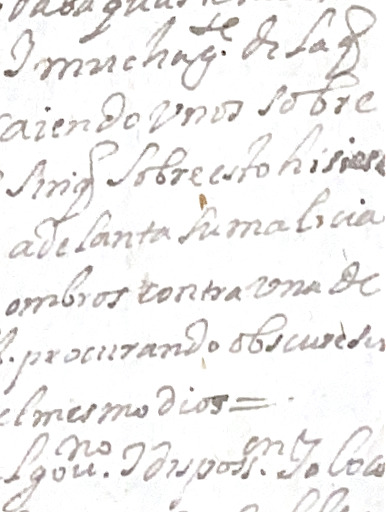 I muchag.te de la q
caiendo vnos sobre
sin q sobre esto hisiese
adelanta su malicia
ombros contra vna de
procurando obscureser
el mesmo dios =
gov.no I disposs.on Io loco